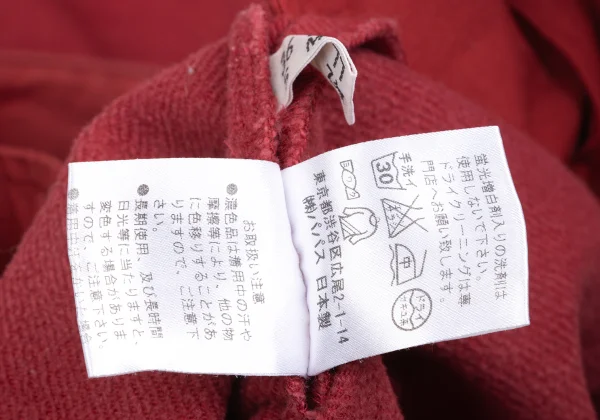 蛍光増白剤入りの洗剤は
使用しないで下さい。
ドライクリーニングは専
門店へお願い致します。
手洗イ
30
中
ドライ
セキユ系
東京都渋谷区広尾2-1-14
㈱パパス 日本製
お取扱い注意
●濃色品は着用中の汗や
摩擦等により、他の物
に色移りすることがあ
りますので、ご注意下
さい。
●長期使用、及び長時間
日光等に当たりますと、
変色する場合がありま
すので、ご注意下さい。